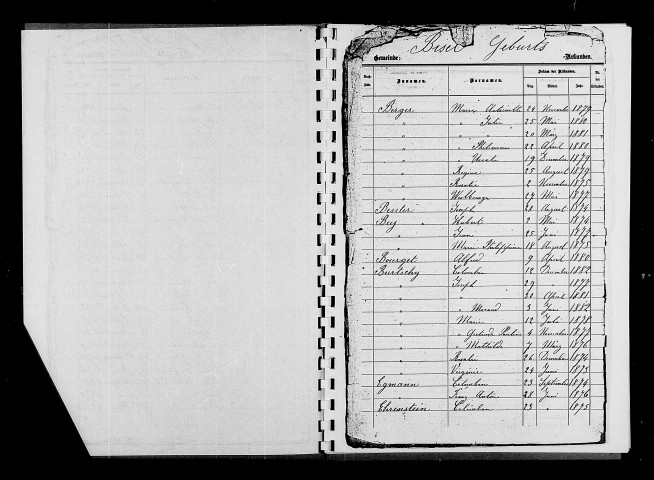 Bisel Geburts
Gemeinde: -Urkunden.
Zunamen. Vornamen. Datum der Urkunden.
Tag. Monat. Jahr.
Berger Marie Antoinette 24 November 1879
" " Julie 25 Mai 1880
" " " 20 März 1881
" " Philomene 22 April 1880
" " Ursula 19 December 1879
" Regina 25 August 1879
" Rosalie 2 November 1875
" Walburga 24 Mai 1877
Bessler Joseph 28 August 1874
Bey Hubert 2 Mai 1874
" 25 Juni 1877
" Marie Philippine 18 August 1875
Bourget Alfred 9 April 1880
Burtschy Columban 12 December 1882
" Joseph 29 " 1877
" " 30 April 1881
" " Morand 3 Juni 1882
" Marie 12 Juli 1878
" " 4 November 1877
" " Mathilde 7 März 1876
" Rosalie 26 December 1874
" Virginie 24 Juni 1873
Egmann Columban 23 September 1874
" Franz Anton 28 Juni 1876
Ehrenstein Columban 23 " 1875